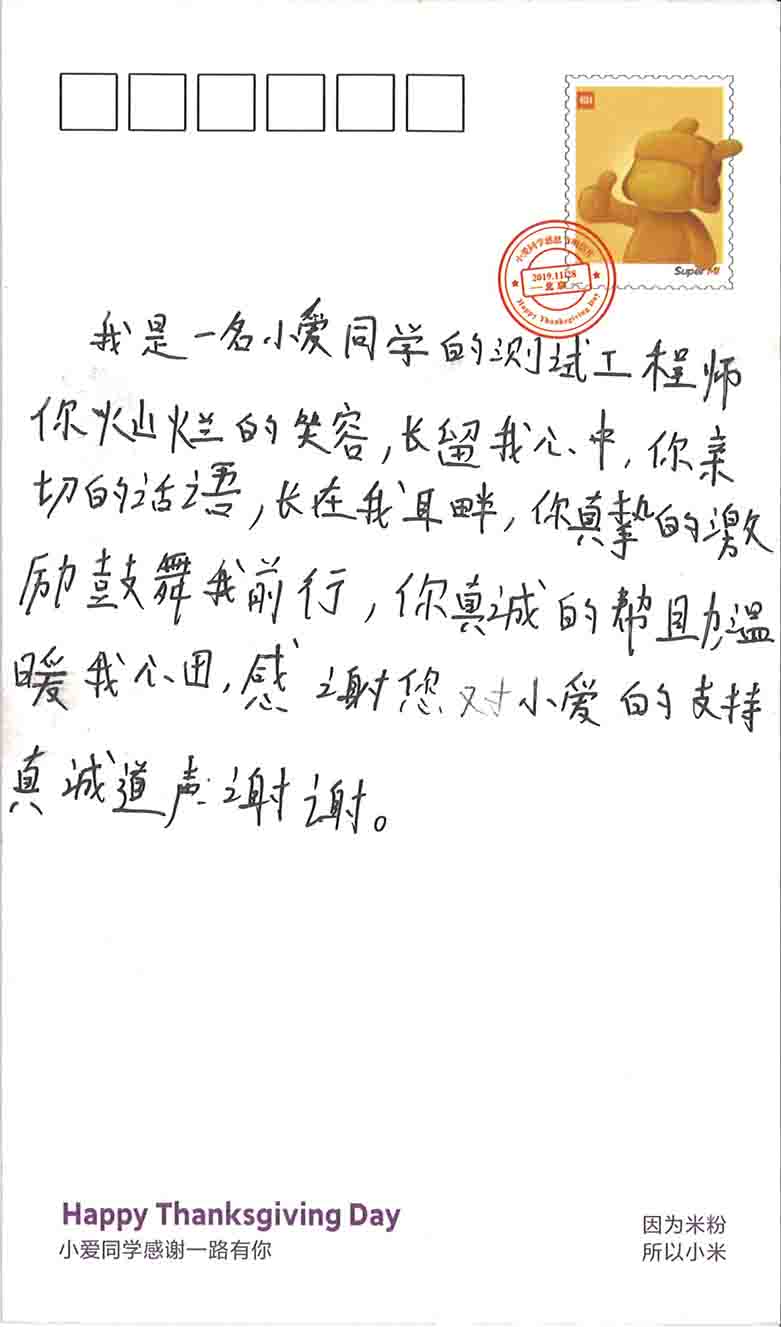 小爱同学感恩节明信片
2019.11.28
北京
Happy Thanksgiving Day
Super MI
我是一名小爱同学的测试工程师
你灿烂的笑容，长留我心中，你亲
切的话语，长在我耳畔，你真挚的激
励鼓舞我前行，你真诚的帮助温
暖我心田，感谢您对小爱的支持
真诚道声谢谢。
Happy Thanksgiving Day
小爱同学感谢一路有你
因为米粉
所以小米